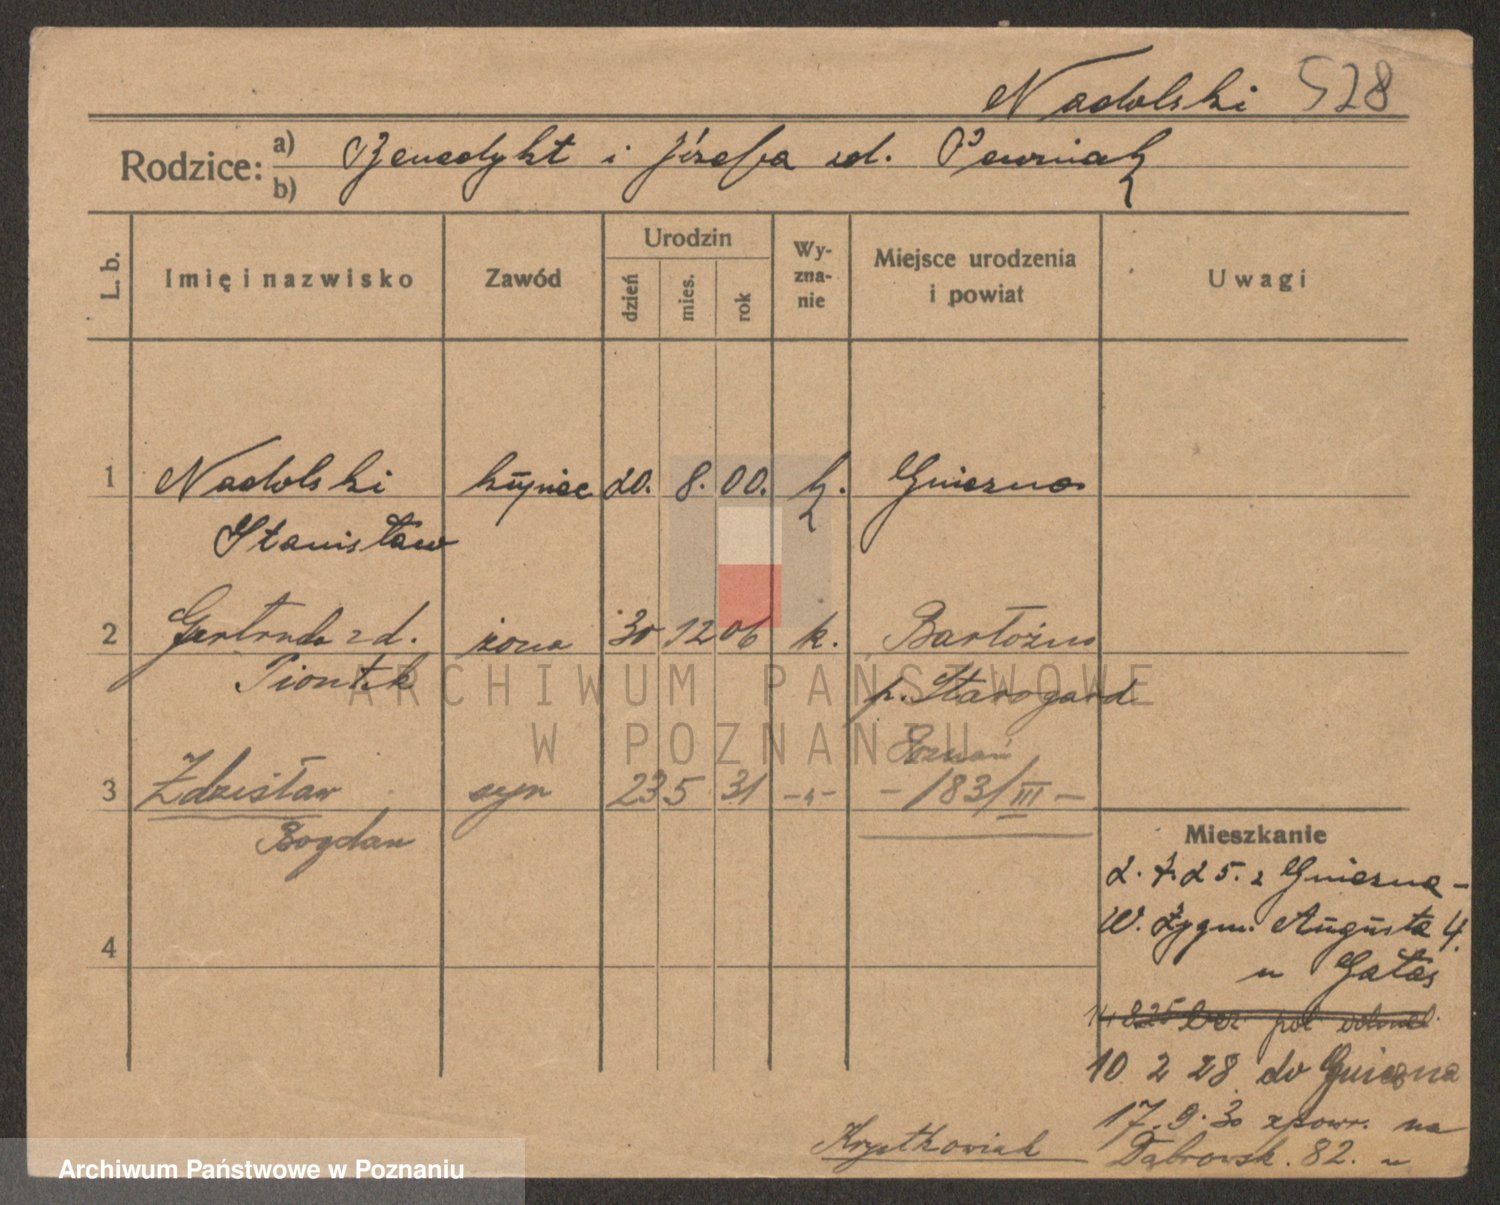 Nadolski 528
Rodzice: a) Benedykt i Józefa zd. Pewniak
b)
L. b. Imię i nazwisko Zawód Urodzin dzień mies. rok Wy-zna-nie Miejsce urodzenia i powiat Uwagi
1 Nadolski kupiec 20. 8. 00. k. Gniezno
Stanisław
2 Gertruda zd. żona 30 12 06 k. Bartożno
Piontek p. Starogard
Poznań
3 Zdzisław syn 23 5 31 -"- - 183/III -
Bogdan
Mieszkanie
2. 7. 25. z Gniezna -
W. Zygm. Augusta 4.
u Gałas
4
825 bez pol.
10 2 28 do Gniezna
17. 9. 30 zpowr. na
Krystkowiak Dąbrowsk. 82.
ARCHIWUM PAŃSTWOWE
W POZNANIU
Archiwum Państwowe w Poznaniu